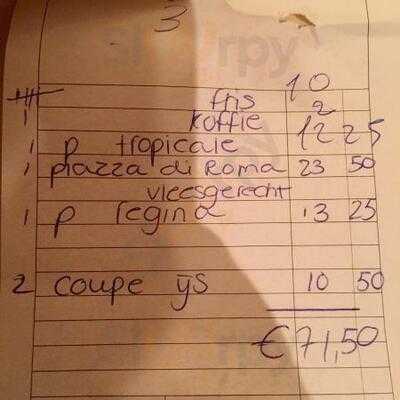 3
fris 10
1 koffie 2
1 p tropicale 12 25
1 piazza di Roma 23 50
vleesgerecht
1 p regina 13 25
2 coupe ijs 10 50
€71,50